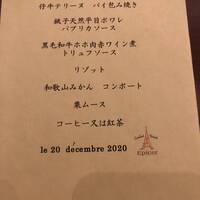 仔牛テリーヌ パイ包み焼き
銚子天然平目ポワレ
パプリカソース
黒毛和牛ホホ肉赤ワイン煮
トリュフソース
リゾット
和歌山みかん コンポート
栗ムース
コーヒー又は紅茶
le 20 décembre 2020
EPICIER